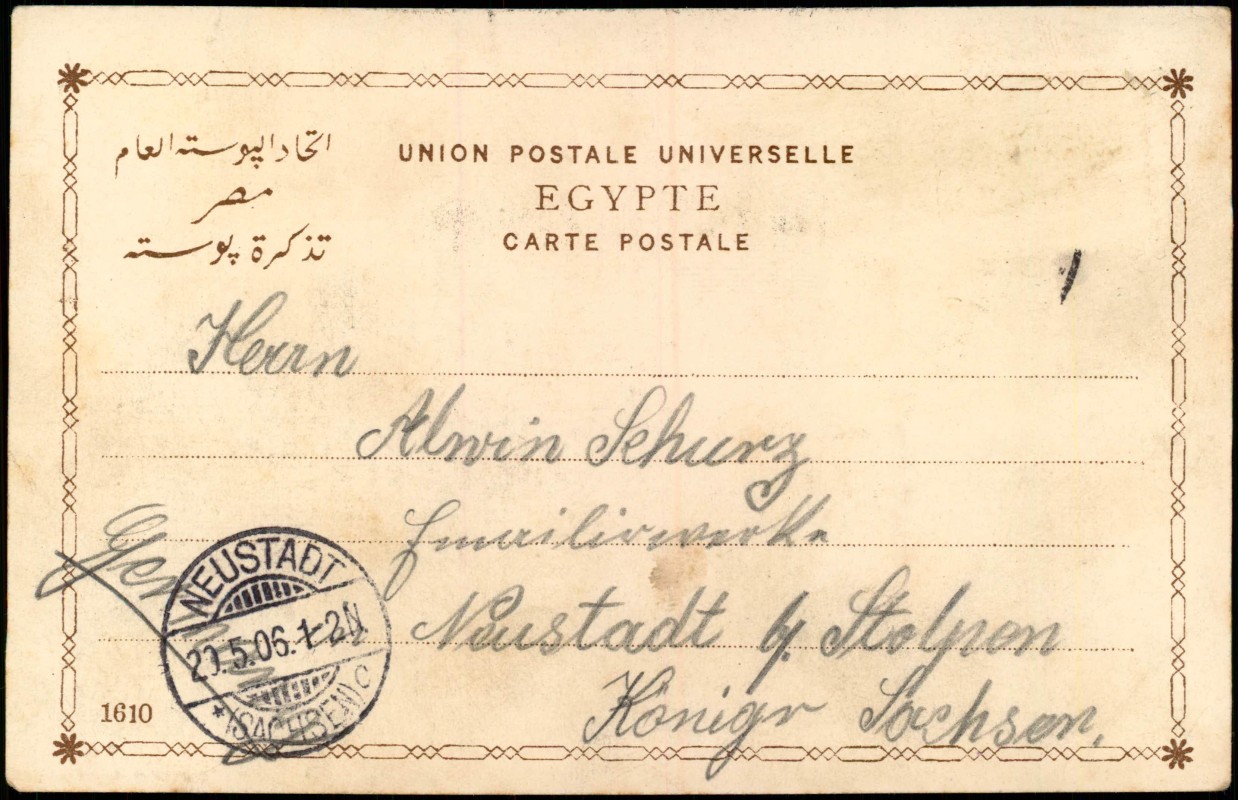 اتحاد البوسته العام
مصر
تذكرة بوسته
UNION POSTALE UNIVERSELLE
EGYPTE
CARTE POSTALE
Herrn
Alwin Schurz
Emailirwerke
Neustadt b/ Stolpen
Königr Sachsen.
NEUSTADT
20.5.06.1-2N.
*(SACHSEN) c
1610